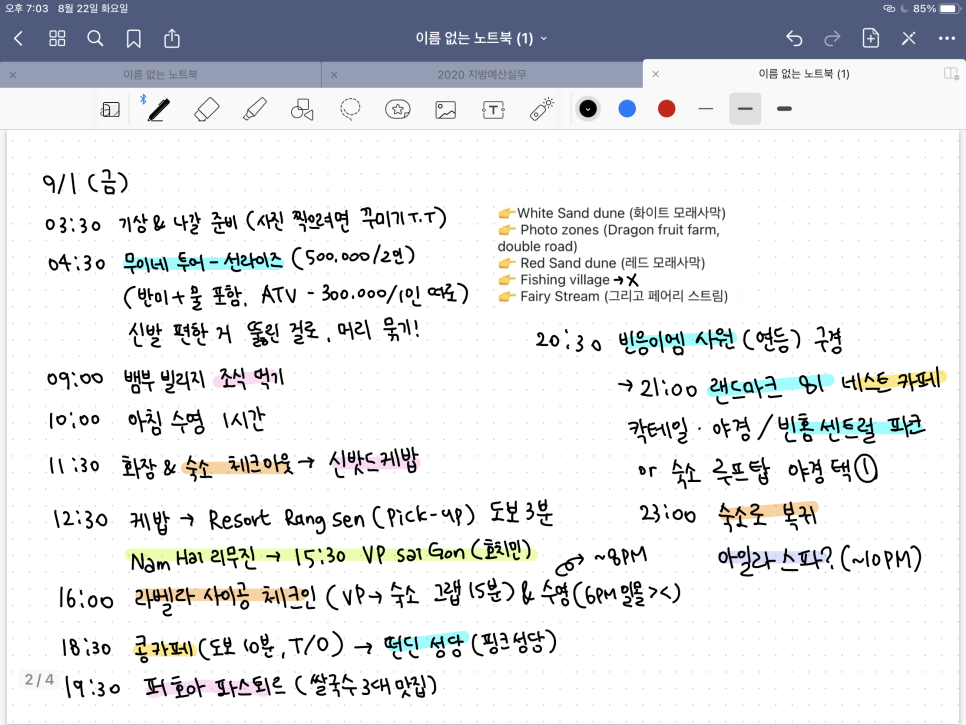 오후 7:03 8월 22일 화요일
85%
이름 없는 노트북 (1)
이름 없는 노트북
2020 지방예산실무
이름 없는 노트북 (1)
9/1 (금)
03:30 기상 & 나갈 준비 (사진 찍으려면 꾸미기 T.T)
04:30 무이네 투어 - 선라이즈 (500.000/2인)
(반미 + 물 포함, ATV - 300.000/1인 따로)
신발 편한 거 뚫린 걸로, 머리 묶기!
09:00 뱀부 빌리지 조식 먹기
10:00 아침 수영 1시간
11:30 화장 & 숙소 체크아웃 → 신밧드케밥
12:30 케밥 → Resort Rang Sen (Pick-up) 도보 3분
Nam Hai 리무진 → 15:30 VP sai Gon (호치민)
16:00 라벨라 사이공 체크인 (VP → 숙소 그랩 15분) & 수영 (6PM 일몰 ><)
~8PM
18:30 콩카페 (도보 10분, T/O) → 떤딘 성당 (핑크성당)
19:30 퍼호아 파스퇴르 (쌀국수 3대 맛집)
👉White Sand dune (화이트 모래사막)
👉 Photo zones (Dragon fruit farm,
double road)
👉 Red Sand dune (레드 모래사막)
👉 Fishing village → X
👉 Fairy Stream (그리고 페어리 스트림)
20:30 빈응이엠 사원 (연등) 구경
→ 21:00 랜드마크 81 네스트 카페
칵테일 · 야경 / 빈홈 센트럴 파크
or 숙소 루프탑 야경 택①
23:00 숙소로 복귀
아일라 스파? (~10PM)
2 / 4